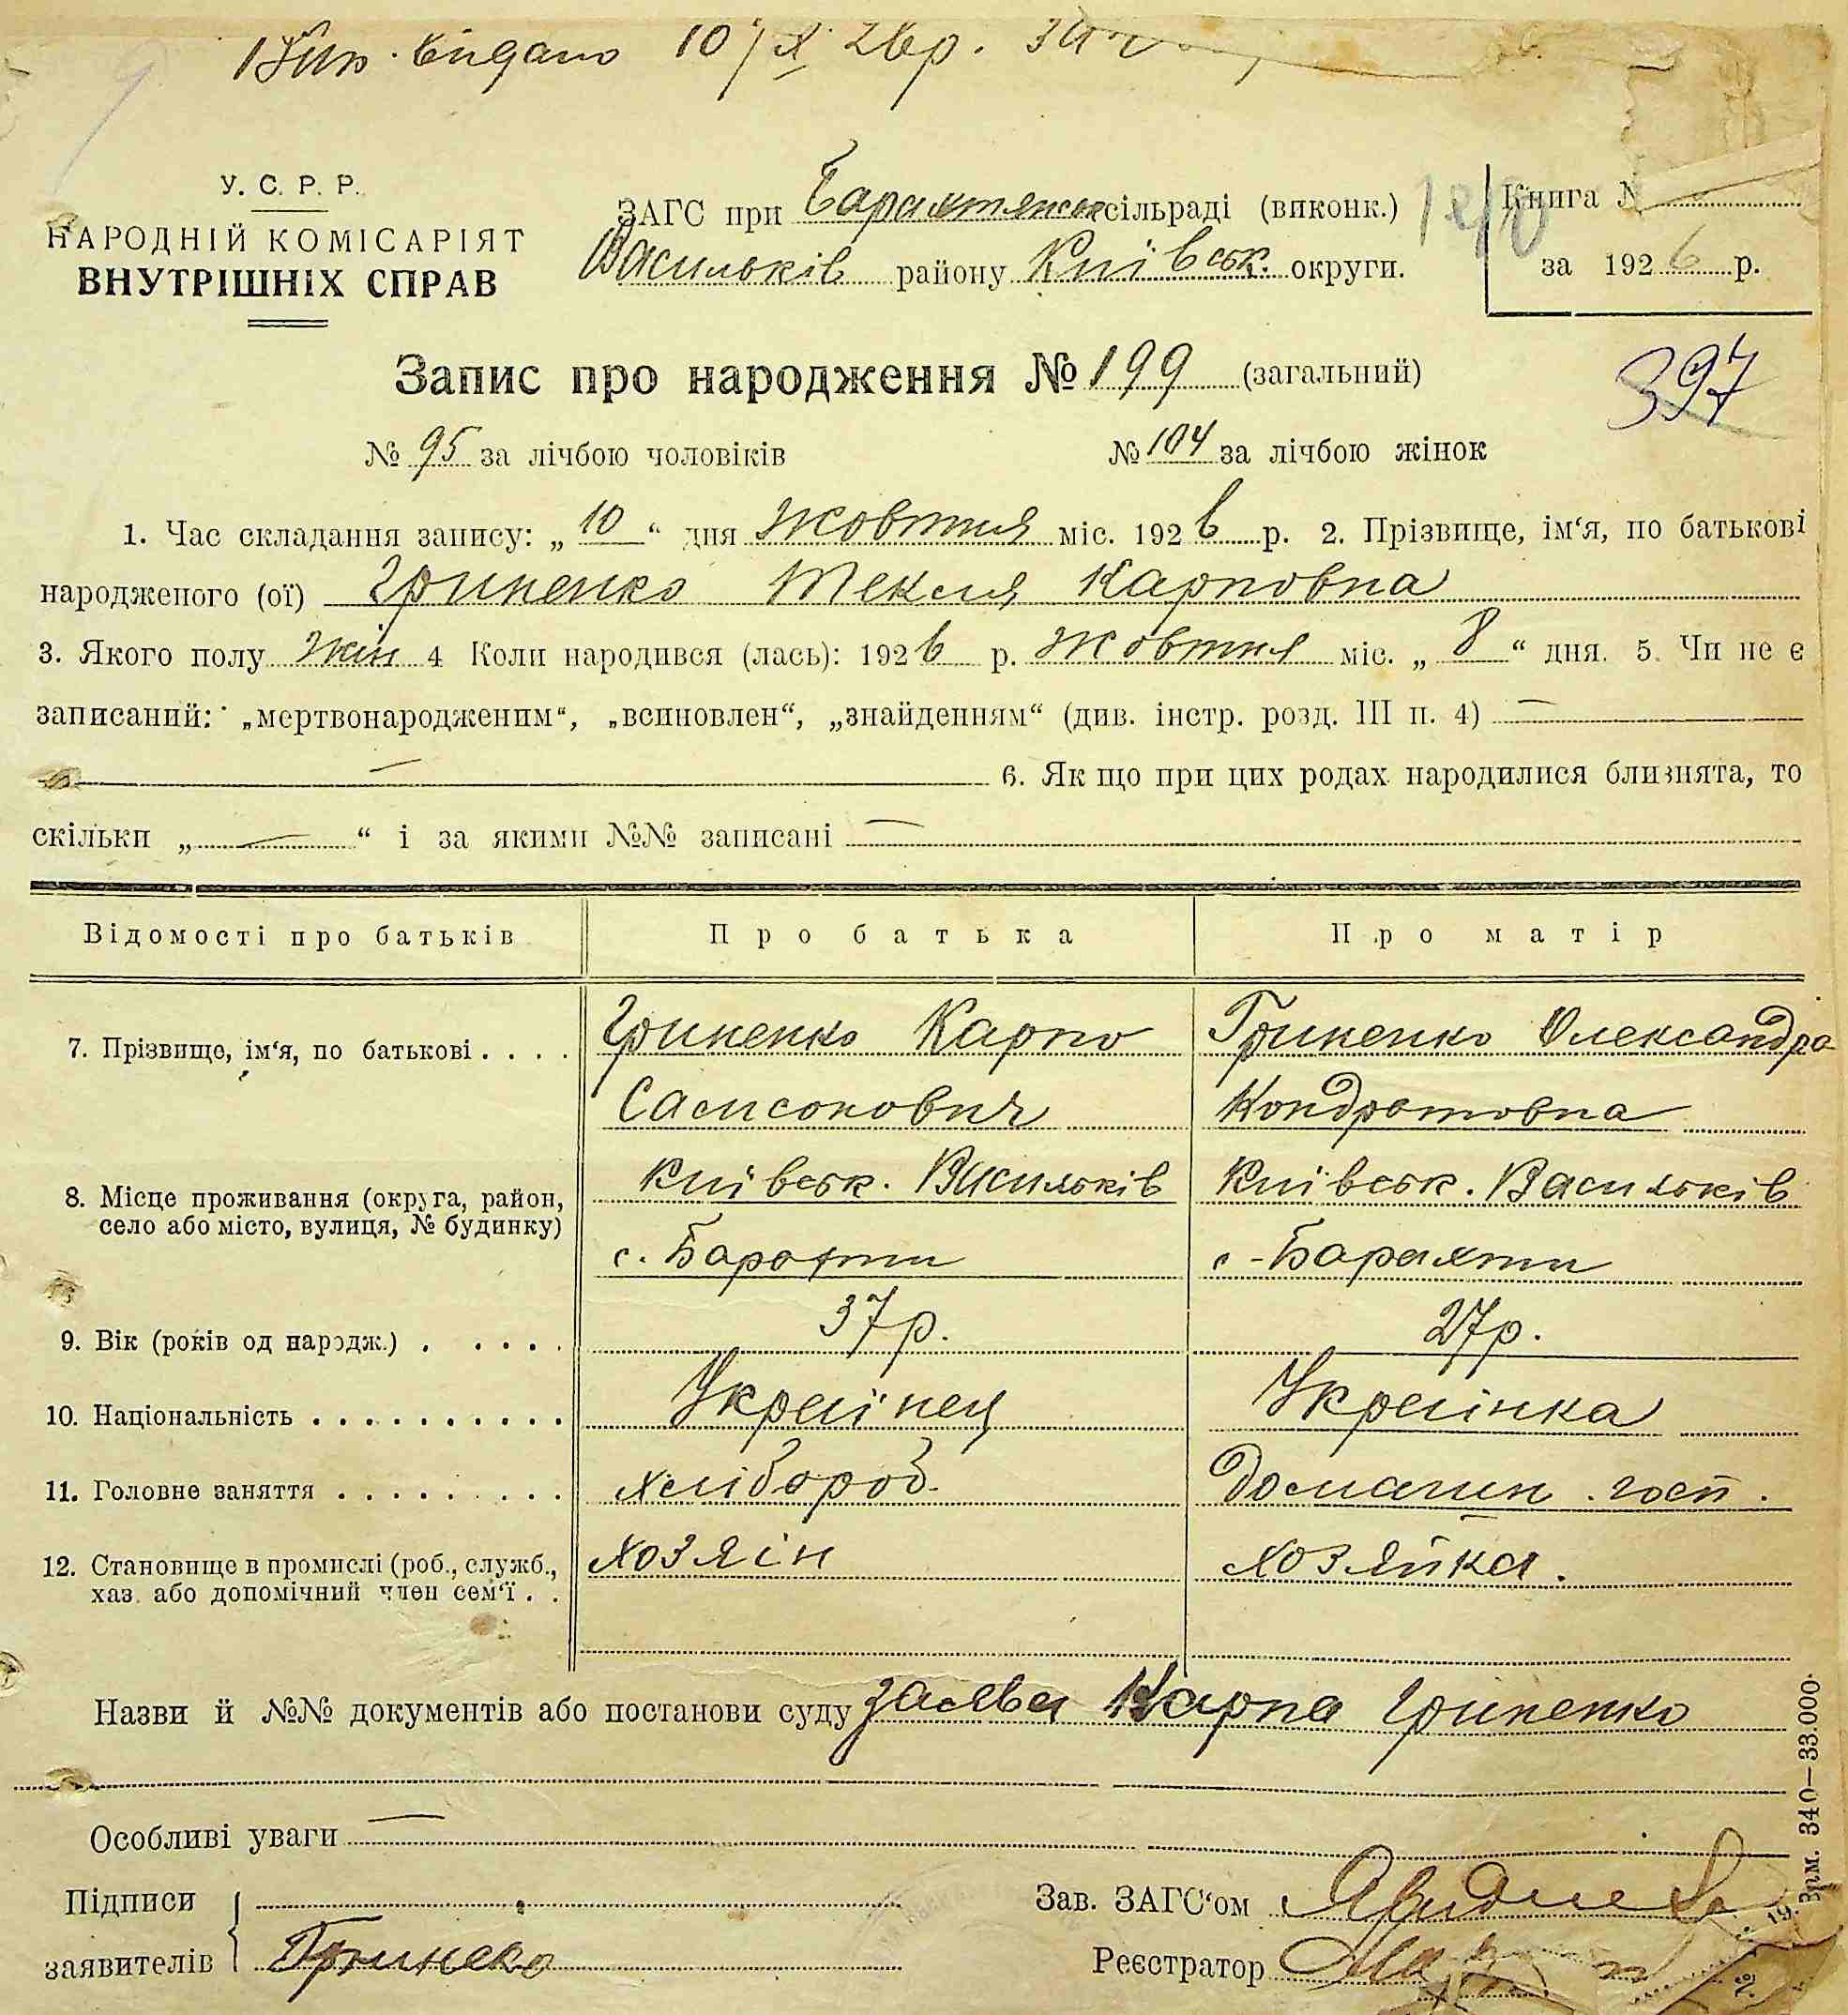 Вип. видано 10/X 26р.
У. С. Р. Р.
НАРОДНІЙ КОМІСАРІЯТ
ВНУТРІШНІХ СПРАВ
ЗАГС при Барахтянськ сільраді (виконк.)
Васильків району Київськ. округи.
Книга №
за 1926 р.
Запис про народження № 199 (загальний)
397
№ 95 за лічбою чоловіків № 104 за лічбою жінок
1. Час складання запису: „10“ дня жовтня міс. 1926 р. 2. Прізвище, ім‘я, по батькові
народженого (ої) Гриненко Текля Карповна
3. Якого полу жін 4 Коли народився (лась): 1926 р. жовтня міс. „8“ дня. 5. Чи не є
записаний: „мертвонародженим“, „всиновлен“, „знайденням“ (див. інстр. розд. III п. 4) —
— 6. Як що при цих родах народилися близнята, то
скільки „—“ і за якими №№ записані —
Відомості про батьків Про батька Про матір
7. Прізвище, ім‘я, по батькові . . . . Гриненко Карпо Гриненко Олександра
Самсонович Кондратовна
8. Місце проживання (округа, район, Київськ. Васильків Київськ. Васильків
село або місто, вулиця, № будинку) с. Барахти с-Барахти
9. Вік (років од народж.) . . . . . 37р. 27р.
10. Національність . . . . . . . . . . Українец Українка
11. Головне заняття . . . . . . . . . хлібороб. Домашн. госп.
12. Становище в промислі (роб., служб., хозяін хозяйка.
хаз. або допомічний член сем‘ї . .
Назви й №№ документів або постанови суду Заява Карпа Гриненко
Особливі уваги —
Підписи
заявителів Гриненко
Зав. ЗАГС‘ом
Реєстратор
Зам. 340—33.000.